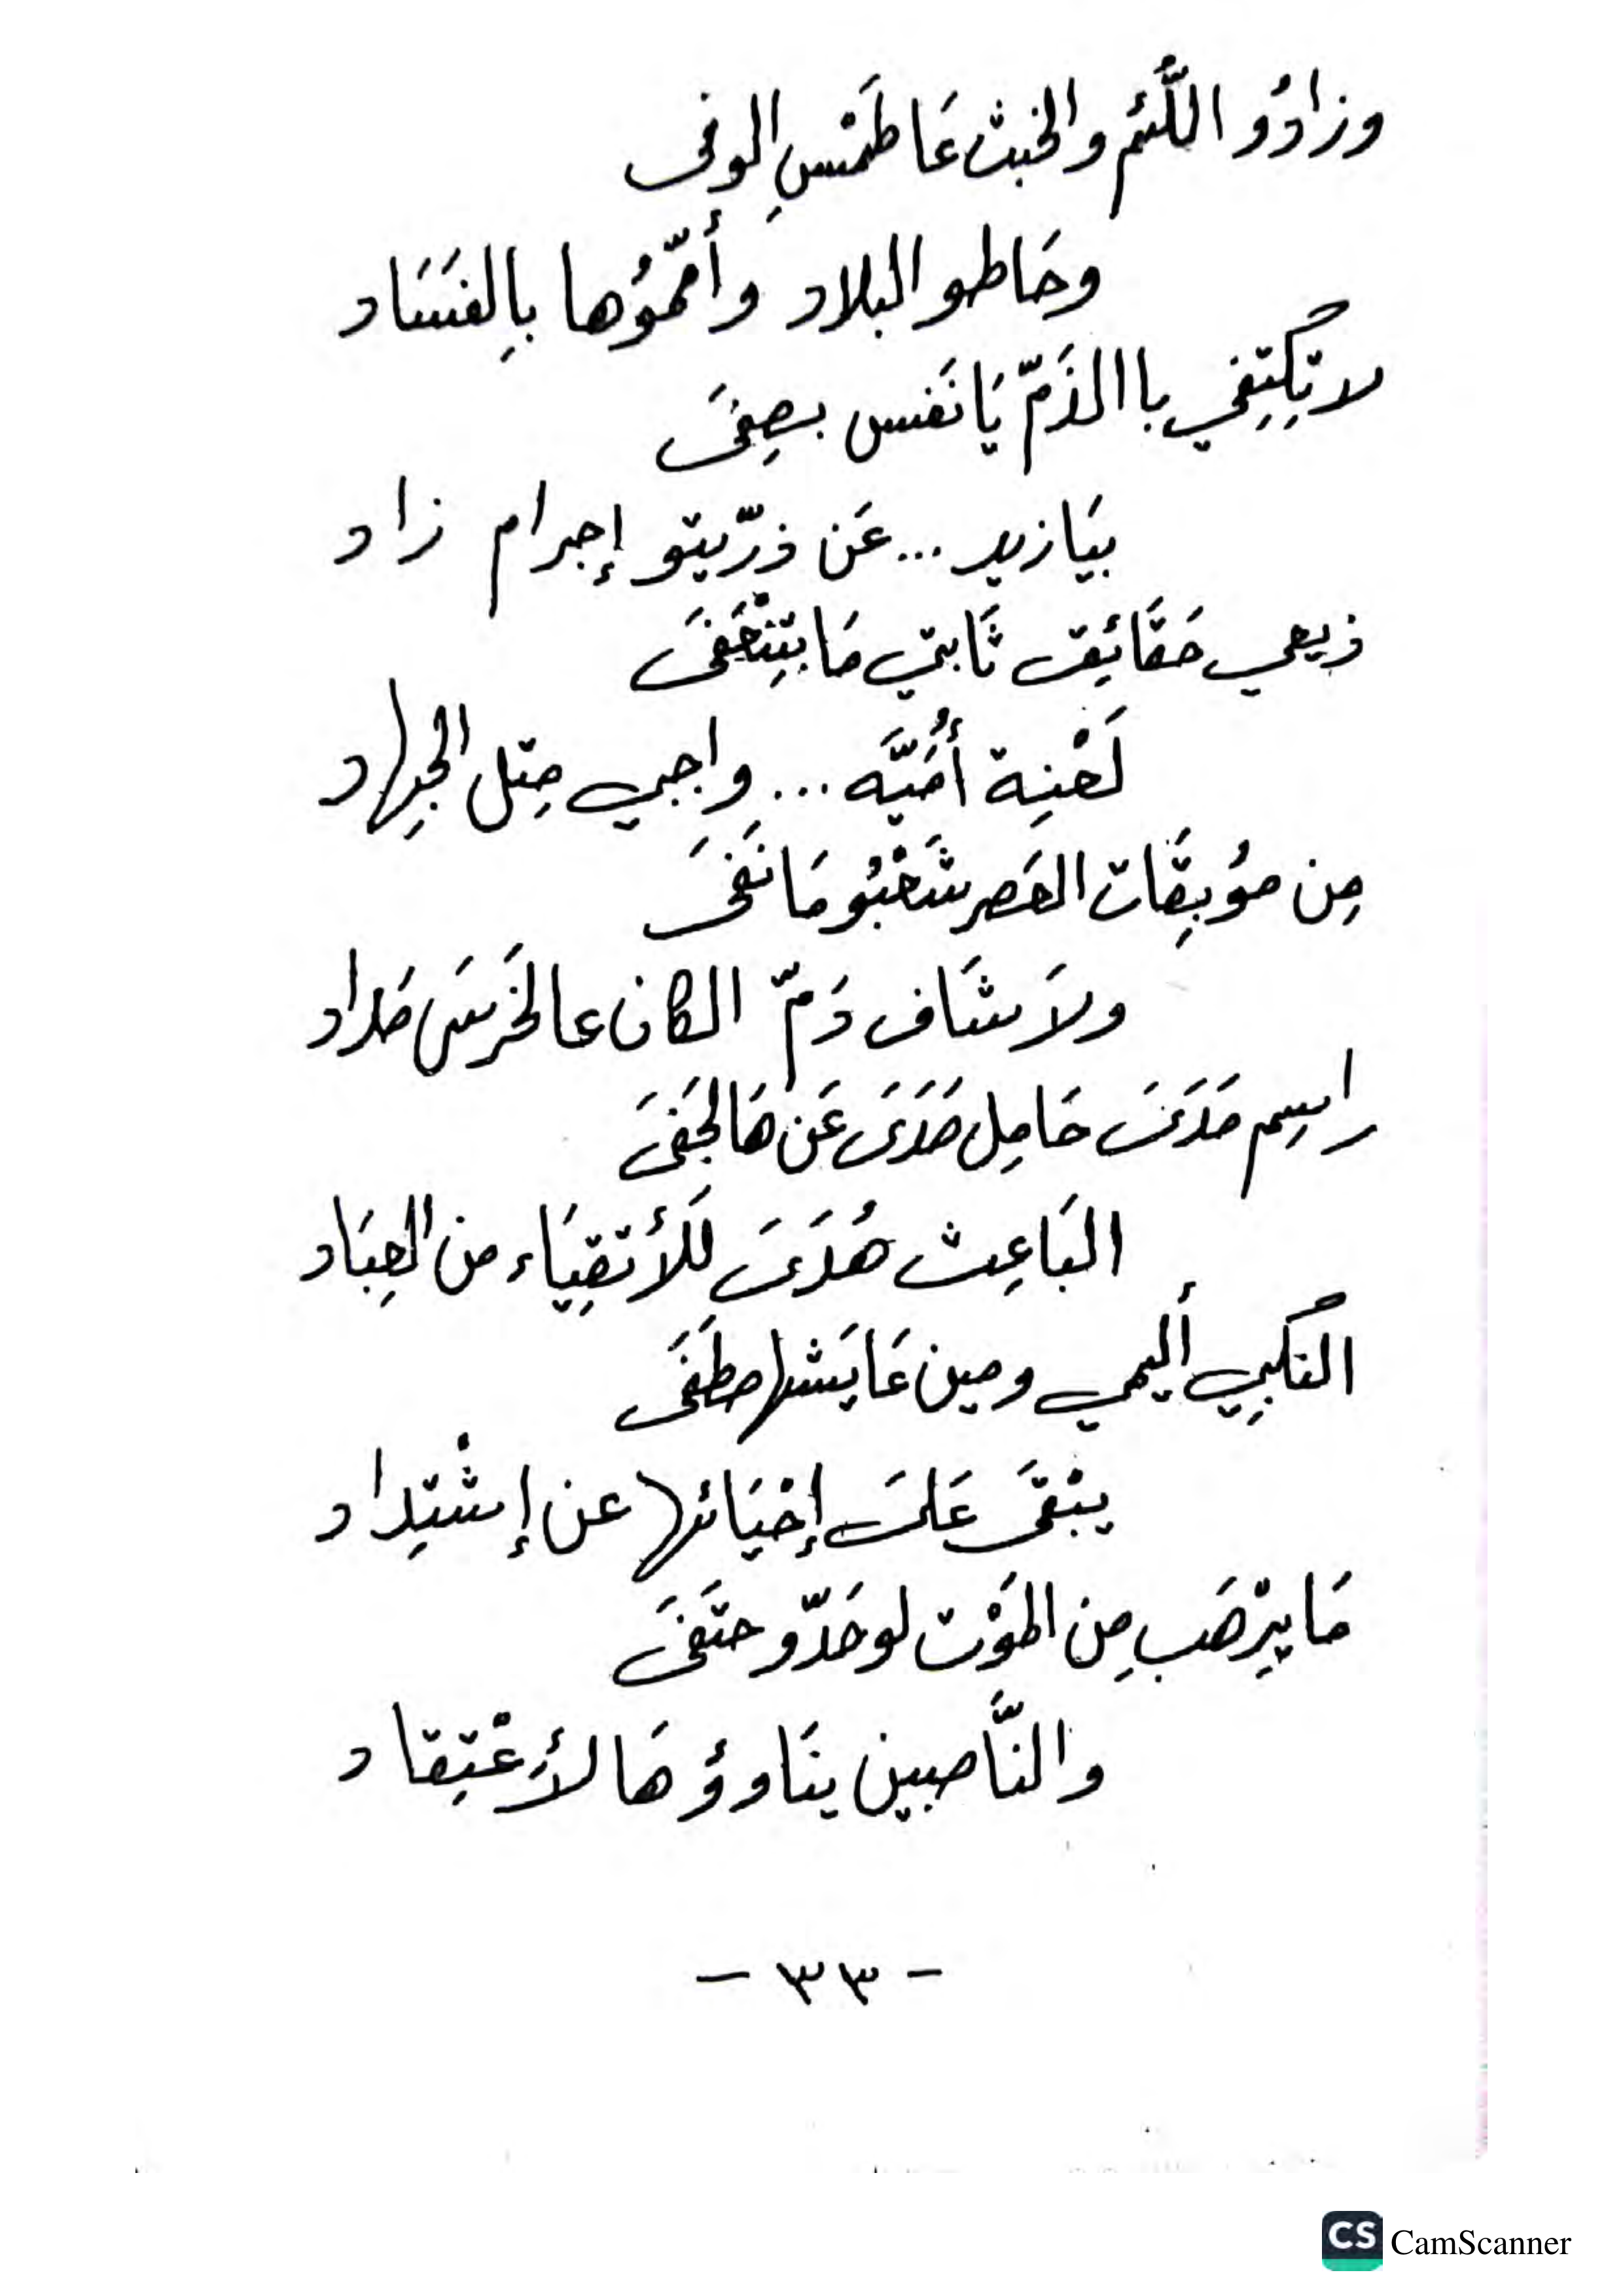 وزادُو اللُّئم والخبث عَا طَمْسِ الوفى
وحَاطو البلاد وأمّمُوُها بِالفسَاد
لا تِكِتِفي باالذَمّ يَا نَفس بصِفىَ
بيَازيد ... عَن ذرّيتو إجرام زاد
ذيعي حَقَائِق ثَابتي مَا بتِنْخَفىَ
لَعْنِة أُمَيَّه ... واجبي مِتل الجِهاد
مِن مؤبِقَات العَصر شَعْبُو مَا نَفىَ
ولاَ شَاف دَمّ الكان عالخَرسَى صَداد
راسِم مَدَىَ حَامِل صَدَىَ عَن هَالجَفىَ
البَاعِث هُدَىَ لَلأتقِيَاء من العِبَاد
النكبِي أليمي ومين عَايَشها صطَفَى
يبْقىَ عَلىَ إحْيَائها عن إشْتِداد
مَا يِرْهَب مِن المَوْت لو حَدّو حتَفىَ
والنَّاصبين يناوؤ هَالأعْتِقاد
- ٣٣ -
CS CamScanner